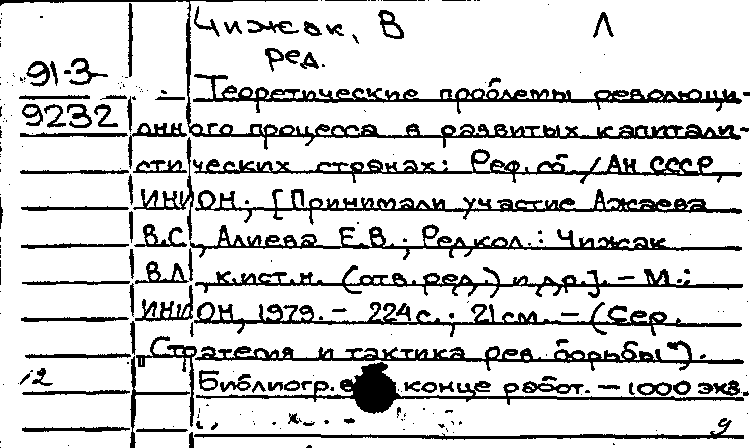 Чижак, В Л
ред.
91-3-
9232
Теоретические проблемы революци-
онного процесса в развитых капитали-
стических странах: Реф. сб / АН СССР,
ИНИОН; [Принимали участие Ажаева
В.С., Алиева Е.В.; Редкол.: Чижак
В.Л., к.ист.н. (отв. ред.) и др.]. - М.:
ИНИОН, 1979. - 224 с.; 21 см. - (Сер.
"Стратегия и тактика рев. борьбы").
12
Библиогр. в конце работ. - 1000 экз.
9